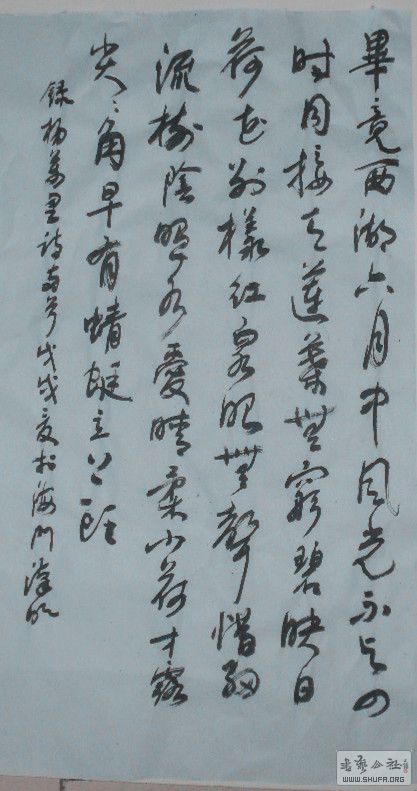 畢竟西湖六月中風光不与四
时同接天蓮葉無窮碧映日
荷花别樣红泉眼無聲惜细
流樹陰照水愛晴柔小荷才露
尖〻角早有蜻蜓立上頭
録杨萬里詩两首戊戌夏於海门
書法公社
WWW.SHUFA.ORG